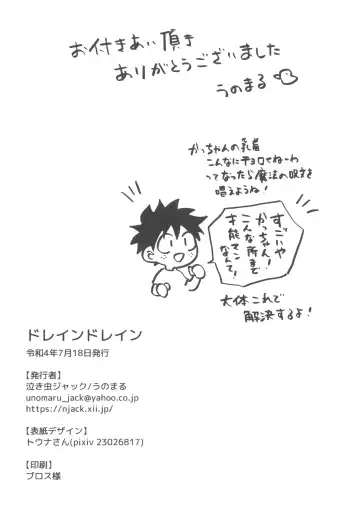 お付きあい頂き
ありがとうございました
うのまる
かっちゃんの乳首
こんなにチョロくねーわ
ってなったら魔法の呪文を
唱えようね!
すごいや
かっちゃん!
こんな所まで
才能マン
なんて!
大体これで
解決するよ!
ドレインドレイン
令和4年7月18日発行
【発行者】
泣き虫ジャック/うのまる
unomaru_jack@yahoo.co.jp
https://njack.xii.jp/
【表紙デザイン】
トウナさん(pixiv 23026817)
【印刷】
プロス様